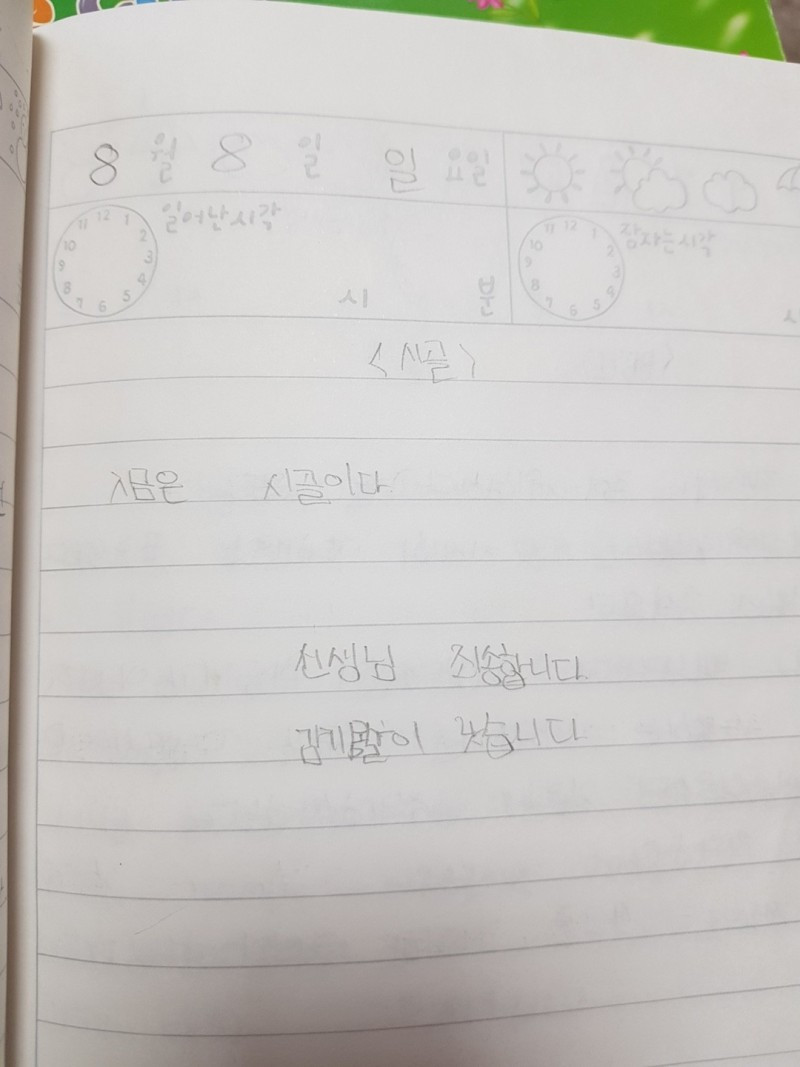 8 월 8 일 일 요일
일어난 시각
11 12 1 2 3 4 5 6 7 8 9 10
시 분
잠자는 시각
11 12 1 2 3 4 5 6 7 8 9 10
<시골>
지금은 시골이다.
선생님 죄송합니다.